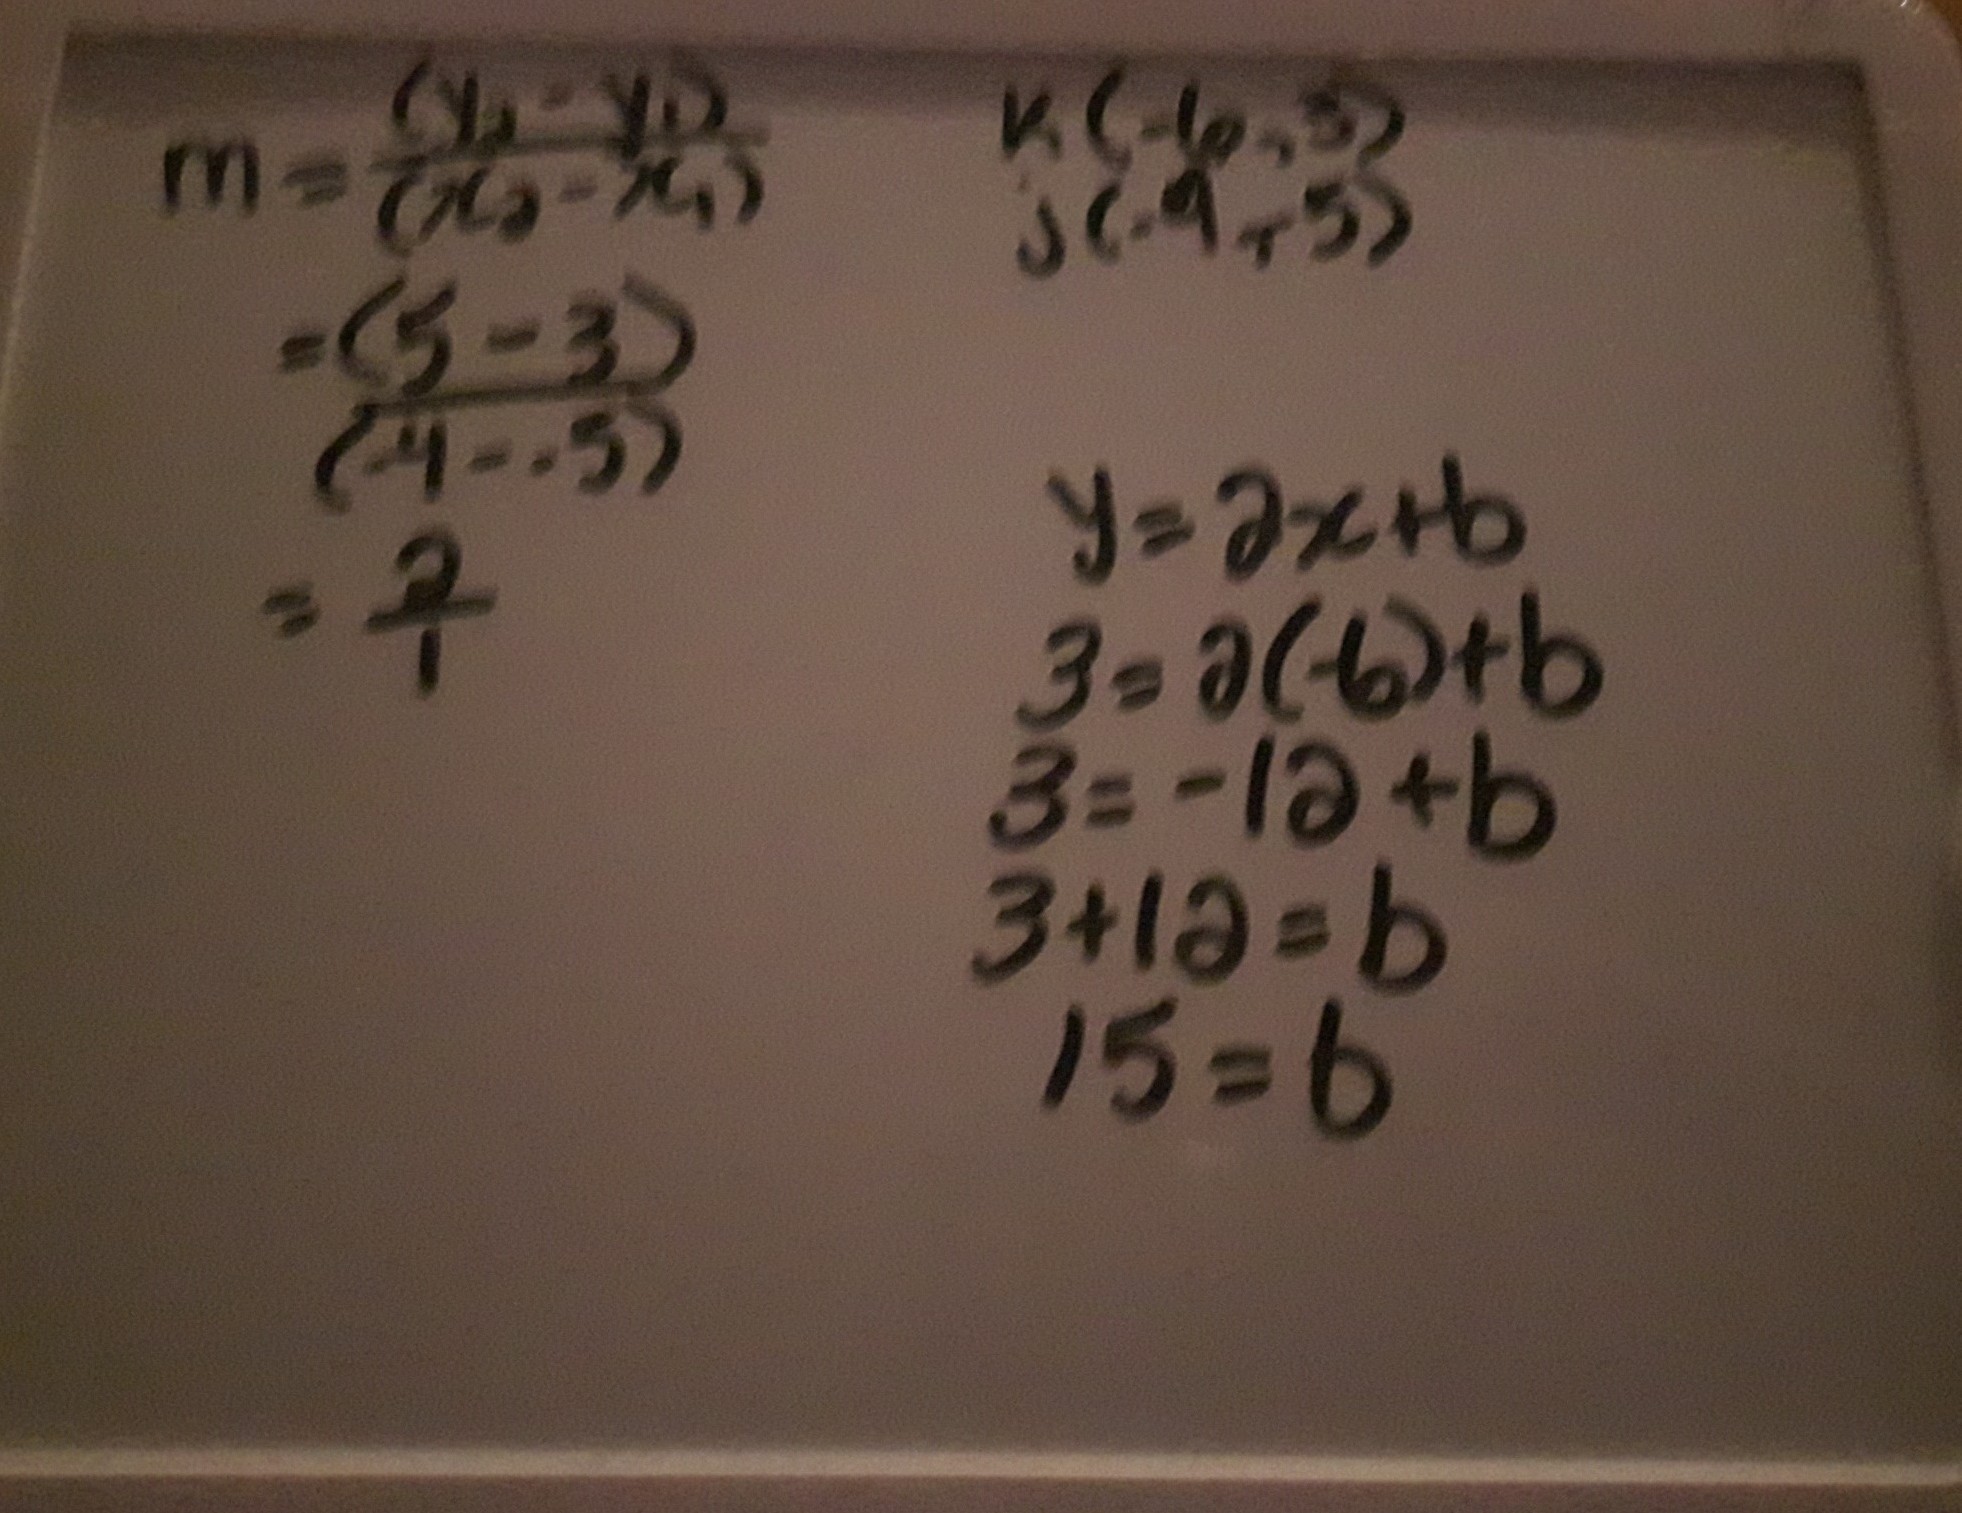 m = (y₂ - y₁)
(x₂ - x₁)
= (5 - 3)
(-4 - -5)
= 2
1
K(-6, 3)
J(-4, 5)
y = 2x + b
3 = 2(-6) + b
3 = -12 + b
3 + 12 = b
15 = b